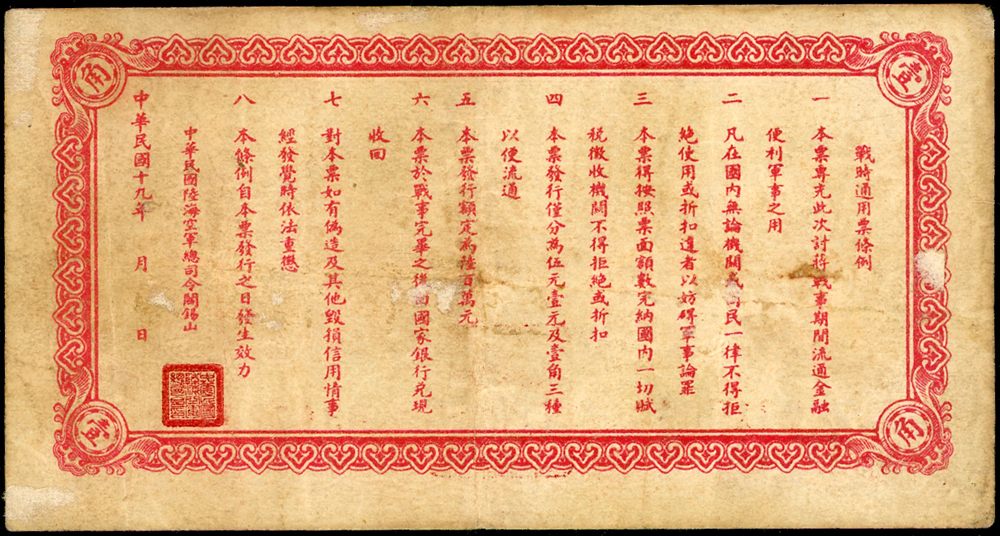 戰時通用票條例
一 本票專充此次討蔣戰事期間流通金融
便利軍事之用
二 凡在國內無論機關或商民一律不得拒
絕使用或折扣違者以妨碍軍事論罪
三 本票得按照票面額數完納國內一切賦
稅徵收機關不得拒絕或折扣
四 本票發行僅分為伍元壹元及壹角三種
以便流通
五 本票發行額定為陸百萬元
六 本票於戰事完畢之後由國家銀行兌現
收回
七 對本票如有偽造及其他毀損信用情事
經發覺時依法重懲
八 本條例自本票發行之日發生效力
中華民國陸海空軍總司令閻錫山
中華民國十九年 月 日
壹
角
壹
角